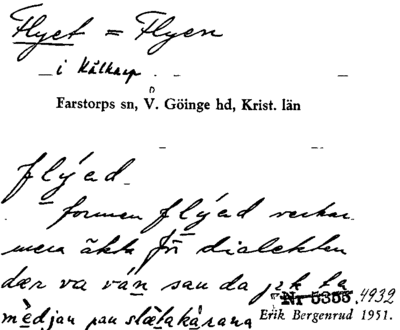 Flyet = Flyen
i Kålkarp
Farstorps sn, V. Göinge hd, Krist. län
flýad
formen flýad verkar
mera äkta för dialekten
dær va ván san da
Nr 5355. 4932
mèdjan pan slætakárana Erik Bergenrud 1951.